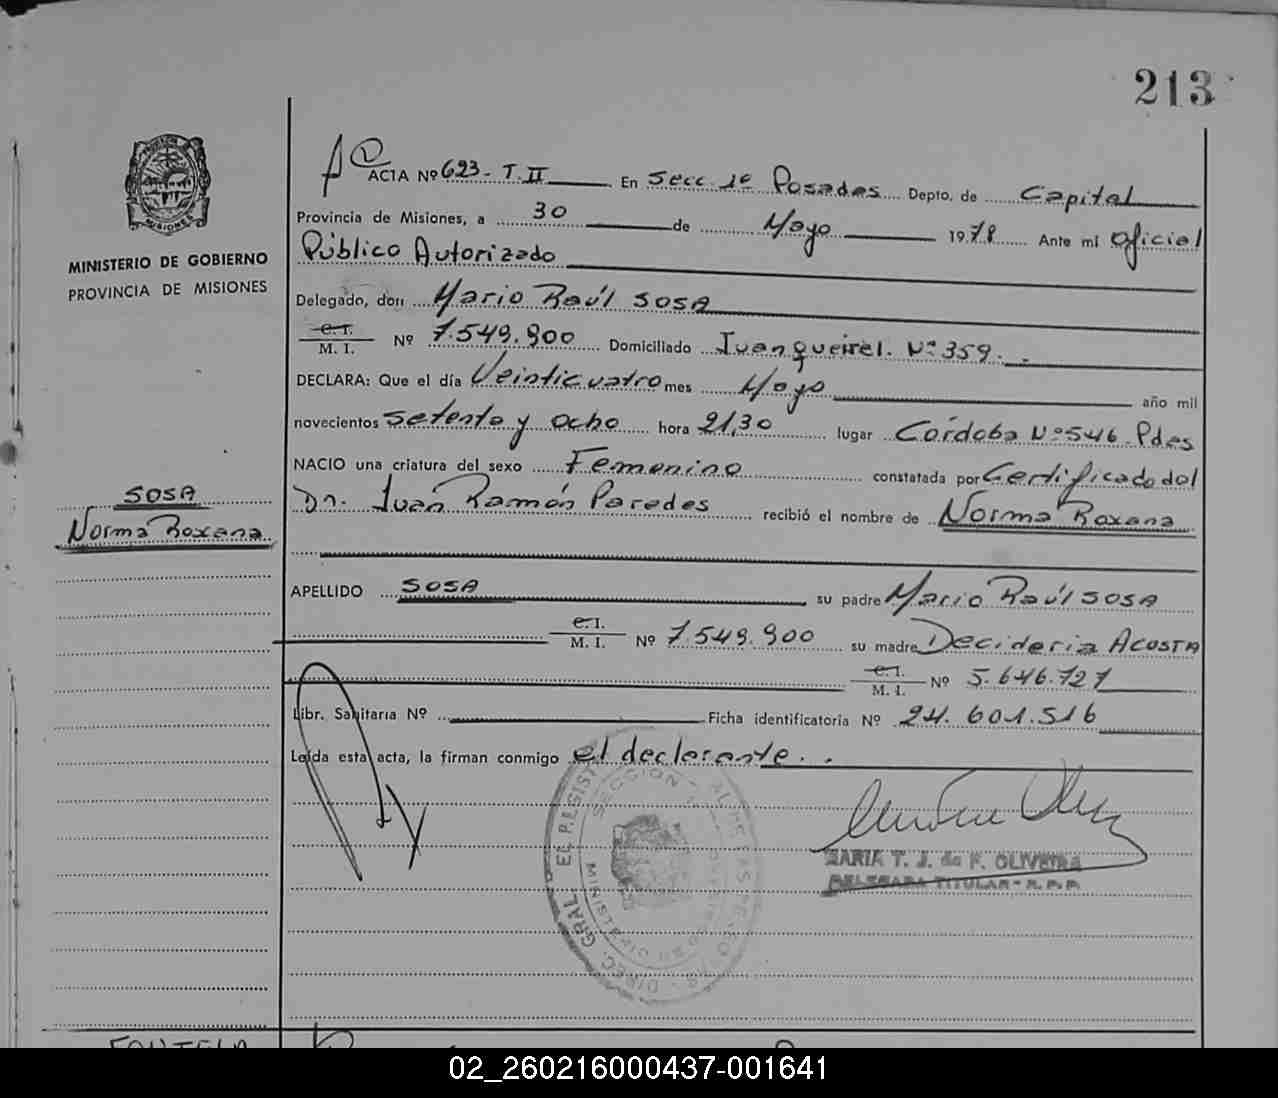 213
ACTA Nº 623 - T. II En Secc. 1º Posadas Depto. de Capital
Provincia de Misiones, a 30 de Mayo 1978 Ante mi Oficial
Público Autorizado
MINISTERIO DE GOBIERNO
PROVINCIA DE MISIONES
Delegado, don Mario Raúl SOSA
C. I.
M. I. Nº 7.549.900 Domiciliado Juan Queirel. Nº 359.
DECLARA: Que el día Veinticuatro mes Mayo año mil
novecientos setenta y ocho hora 21,30 lugar Córdoba Nº 546. Pdas
NACIO una criatura del sexo Femenino constatada por Certificado del
SOSA
Norma Roxana
Dr. Juan Ramón Paredes recibió el nombre de Norma Roxana
APELLIDO SOSA su padre Mario Raúl SOSA
C. I.
M. I. Nº 7.549.900 su madre Decideria ACOSTA
C. I.
M. I. Nº 5.646.727
Libr. Sanitaria Nº Ficha identificatoria Nº 24.601.516
Leida esta acta, la firman conmigo el declarante.
MARIA T. J. de F. OLIVEIRA
DELEGADA TITULAR - R. P. P.
DIREC. GRAL. EL REGIST
SECCION
MISIONES
02_260216000437-001641